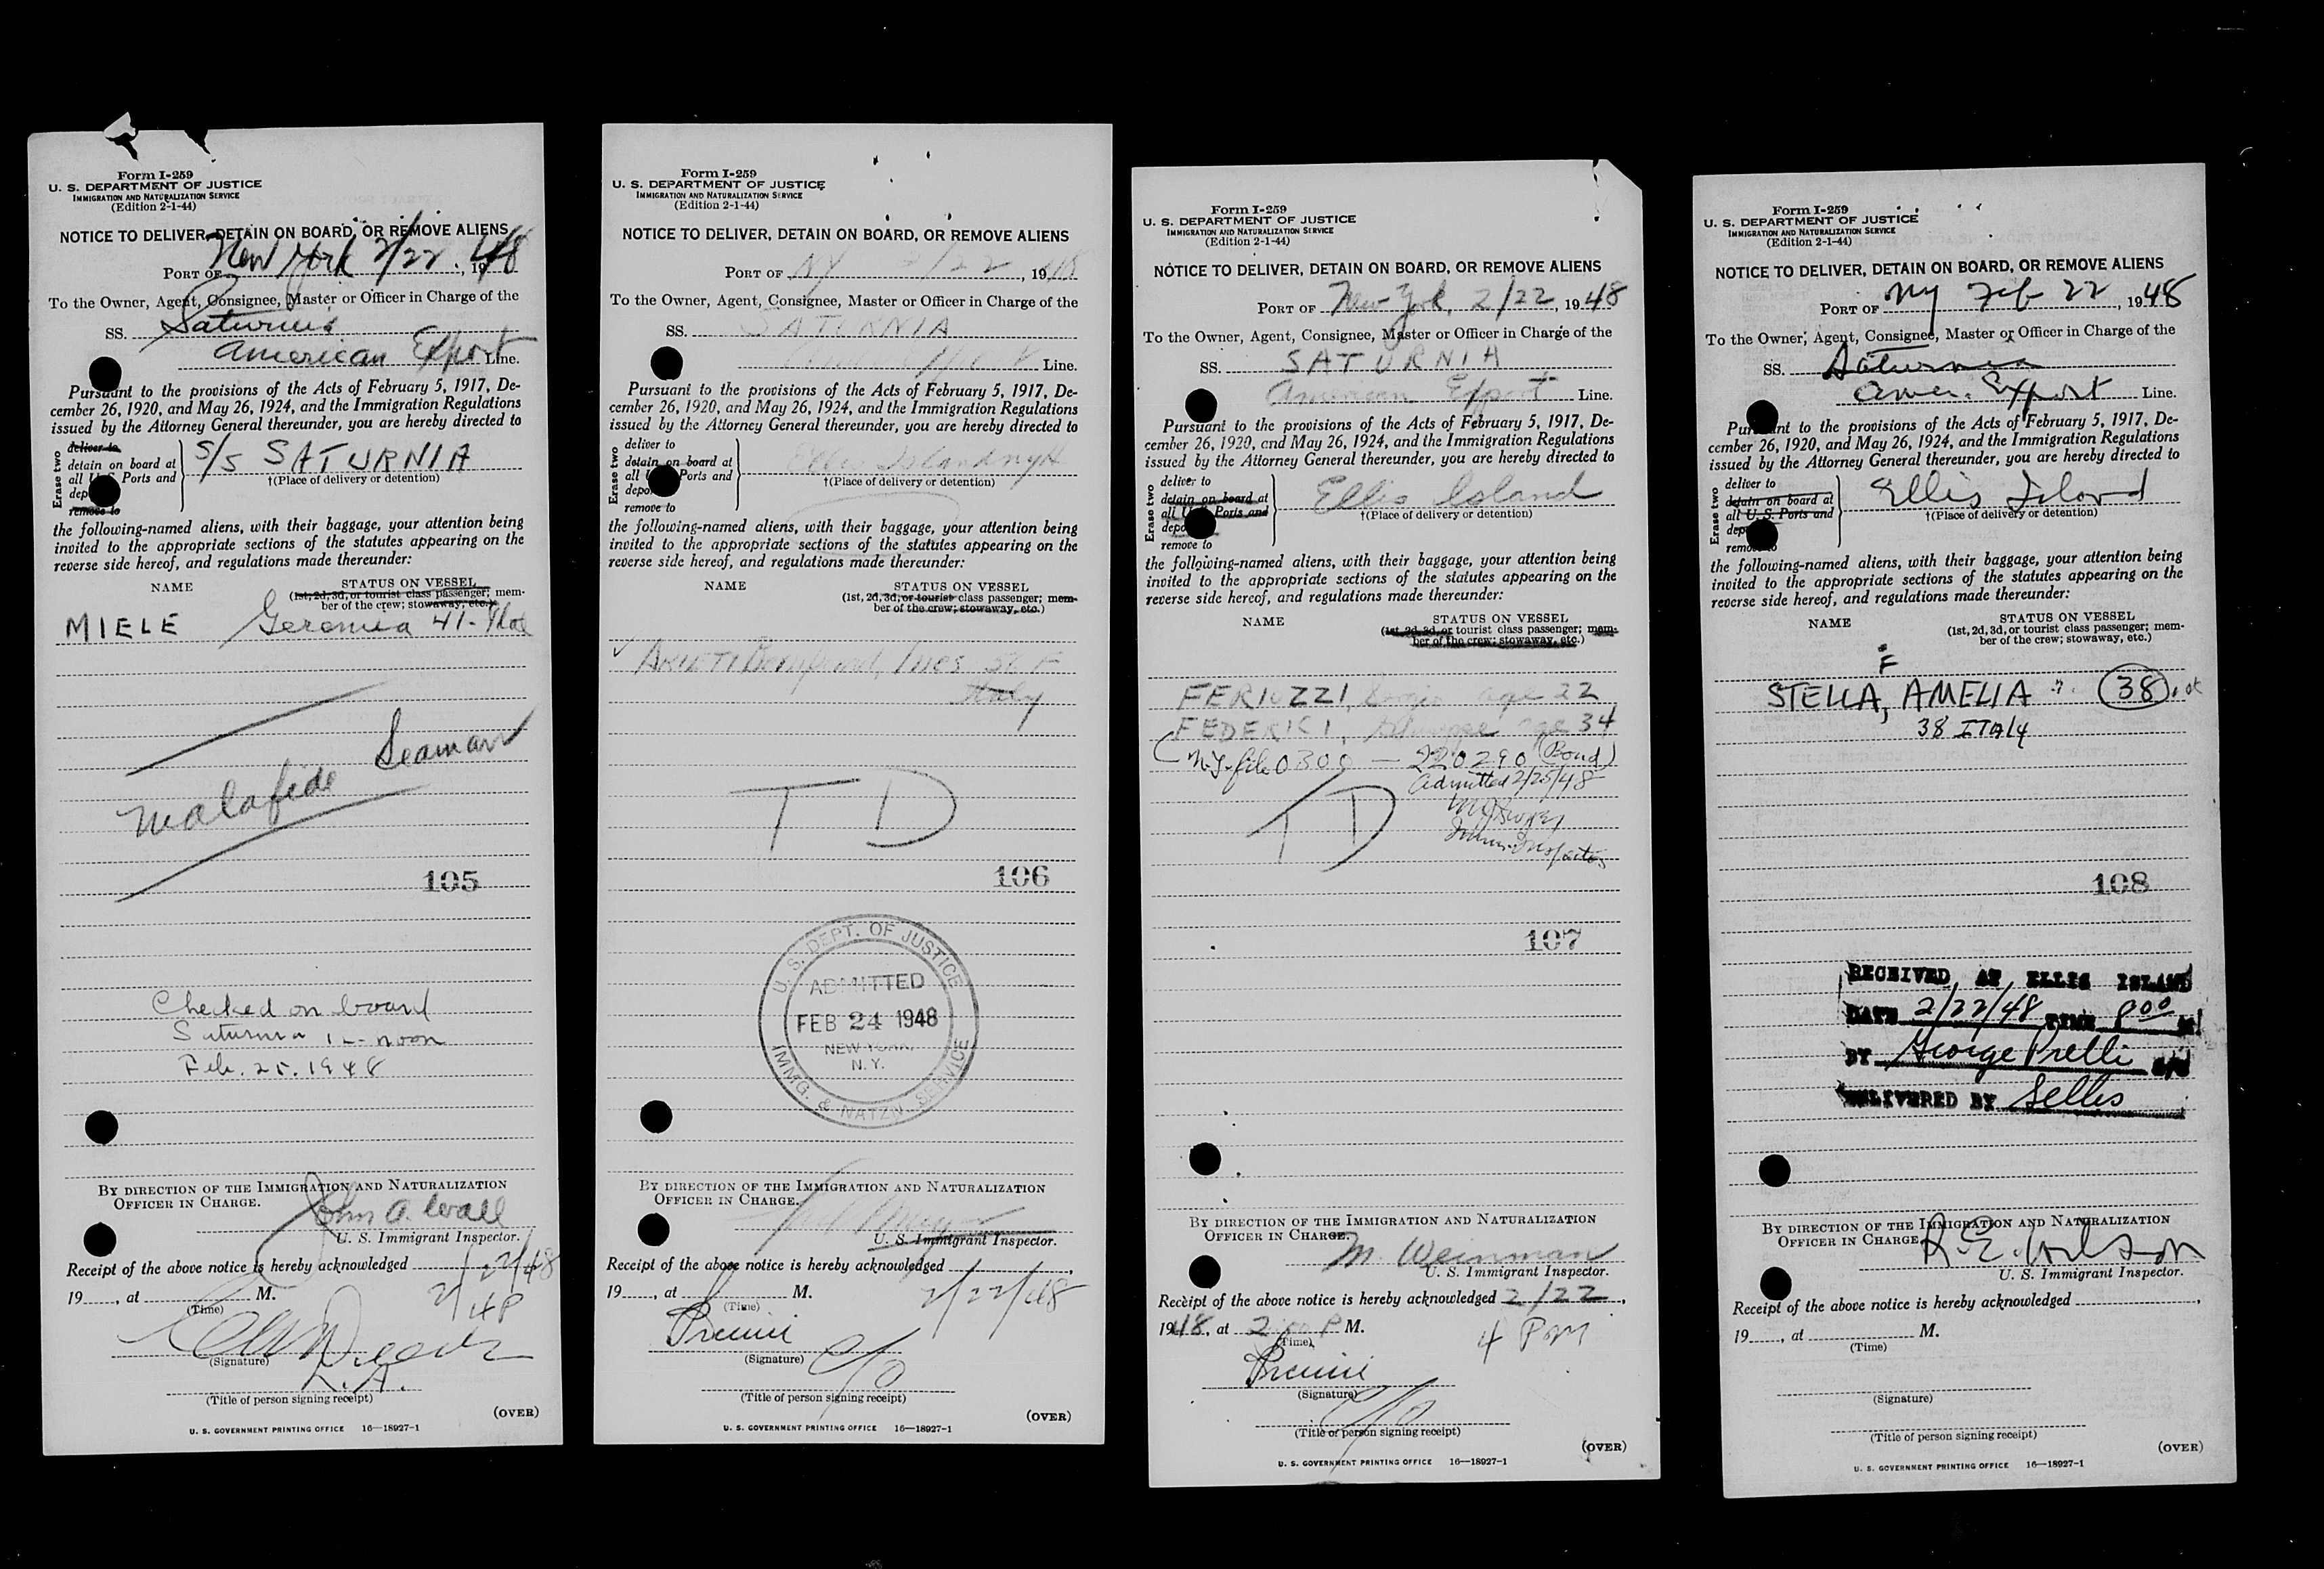 Form I-259
U. S. DEPARTMENT OF JUSTICE
IMMIGRATION AND NATURALIZATION SERVICE
(Edition 2-1-44)
NOTICE TO DELIVER, DETAIN ON BOARD, OR REMOVE ALIENS
PORT OF New York 2/22, 1948
To the Owner, Agent, Consignee, Master or Officer in Charge of the
SS. Saturnia
American Export Line.
Pursuant to the provisions of the Acts of February 5, 1917, De-
cember 26, 1920, and May 26, 1924, and the Immigration Regulations
issued by the Attorney General thereunder, you are hereby directed to
Erase two
deliver to
detain on board at
all U.S. Ports and
remove to
S/S SATURNIA
†(Place of delivery or detention)
the following-named aliens, with their baggage, your attention being
invited to the appropriate sections of the statutes appearing on the
reverse side hereof, and regulations made thereunder:
NAME STATUS ON VESSEL
(1st, 2d, 3d, or tourist class passenger; mem-
ber of the crew; stowaway, etc.)
MIELE Geremia 41-
Seaman
malafide
105
Checked on board
Saturnia 12 noon
Feb. 25. 1948
BY DIRECTION OF THE IMMIGRATION AND NATURALIZATION
OFFICER IN CHARGE.
John A. Wall
U. S. Immigrant Inspector.
Receipt of the above notice is hereby acknowledged 2/22/48
19, at M. 4P
(Time)
(Signature)
(Title of person signing receipt)
(OVER)
U. S. GOVERNMENT PRINTING OFFICE 16—18927-1
Form I-259
U. S. DEPARTMENT OF JUSTICE
IMMIGRATION AND NATURALIZATION SERVICE
(Edition 2-1-44)
NOTICE TO DELIVER, DETAIN ON BOARD, OR REMOVE ALIENS
PORT OF NY 2/22, 1948
To the Owner, Agent, Consignee, Master or Officer in Charge of the
SS. SATURNIA
Line.
Pursuant to the provisions of the Acts of February 5, 1917, De-
cember 26, 1920, and May 26, 1924, and the Immigration Regulations
issued by the Attorney General thereunder, you are hereby directed to
Erase two
deliver to
detain on board at
all Ports and
remove to
Ellis Island NYH
†(Place of delivery or detention)
the following-named aliens, with their baggage, your attention being
invited to the appropriate sections of the statutes appearing on the
reverse side hereof, and regulations made thereunder:
NAME STATUS ON VESSEL
(1st, 2d, 3d, or tourist class passenger; mem-
ber of the crew; stowaway, etc.)
Italy
T D
106
U. S. DEPT. OF JUSTICE
ADMITTED
FEB 24 1948
NEW YORK,
N. Y.
IMMG. & NATZN. SERVICE
BY DIRECTION OF THE IMMIGRATION AND NATURALIZATION
OFFICER IN CHARGE.
U. S. Immigrant Inspector.
Receipt of the above notice is hereby acknowledged,
19, at M. 2/22/48
(Time)
(Signature)
(Title of person signing receipt)
(OVER)
U. S. GOVERNMENT PRINTING OFFICE 16—18927-1
Form I-259
U. S. DEPARTMENT OF JUSTICE
IMMIGRATION AND NATURALIZATION SERVICE
(Edition 2-1-44)
NOTICE TO DELIVER, DETAIN ON BOARD, OR REMOVE ALIENS
PORT OF New York, 2/22, 1948
To the Owner, Agent, Consignee, Master or Officer in Charge of the
SS. SATURNIA
American Export Line.
Pursuant to the provisions of the Acts of February 5, 1917, De-
cember 26, 1920, and May 26, 1924, and the Immigration Regulations
issued by the Attorney General thereunder, you are hereby directed to
Erase two
deliver to
detain on board at
all Ports and
remove to
Ellis Island
†(Place of delivery or detention)
the following-named aliens, with their baggage, your attention being
invited to the appropriate sections of the statutes appearing on the
reverse side hereof, and regulations made thereunder:
NAME STATUS ON VESSEL
(1st, 2d, 3d, or tourist class passenger; mem-
ber of the crew; stowaway, etc.)
FERIOZZI, age 22
FEDERICI, age 34
(N.Y. file 0300 — 220290 (Bond)
Admitted 2/25/48
Immr. Inspector
T D
107
BY DIRECTION OF THE IMMIGRATION AND NATURALIZATION
OFFICER IN CHARGE.
M. Weinman
U. S. Immigrant Inspector.
Receipt of the above notice is hereby acknowledged 2/22,
1948, at 2:00 P M.
(Time) 4 Pm
(Signature)
(Title of person signing receipt)
(OVER)
U. S. GOVERNMENT PRINTING OFFICE 16—18927-1
Form I-259
U. S. DEPARTMENT OF JUSTICE
IMMIGRATION AND NATURALIZATION SERVICE
(Edition 2-1-44)
NOTICE TO DELIVER, DETAIN ON BOARD, OR REMOVE ALIENS
PORT OF NY Feb 22, 1948
To the Owner, Agent, Consignee, Master or Officer in Charge of the
SS. Saturnia
Amer. Export Line.
Pursuant to the provisions of the Acts of February 5, 1917, De-
cember 26, 1920, and May 26, 1924, and the Immigration Regulations
issued by the Attorney General thereunder, you are hereby directed to
Erase two
deliver to
detain on board at
all U.S. Ports and
remove to
Ellis Island
†(Place of delivery or detention)
the following-named aliens, with their baggage, your attention being
invited to the appropriate sections of the statutes appearing on the
reverse side hereof, and regulations made thereunder:
NAME STATUS ON VESSEL
(1st, 2d, 3d, or tourist class passenger; mem-
ber of the crew; stowaway, etc.)
F
STELLA, AMELIA 38
38 ITALY
108
RECEIVED AT ELLIS ISLAND
DATE 2/22/48 TIME 8 00 M
BY George Prelli
DELIVERED BY Sellis
BY DIRECTION OF THE IMMIGRATION AND NATURALIZATION
OFFICER IN CHARGE
R. E. Wilson
U. S. Immigrant Inspector.
Receipt of the above notice is hereby acknowledged,
19, at M.
(Time)
(Signature)
(Title of person signing receipt)
(OVER)
U. S. GOVERNMENT PRINTING OFFICE 16—18927-1